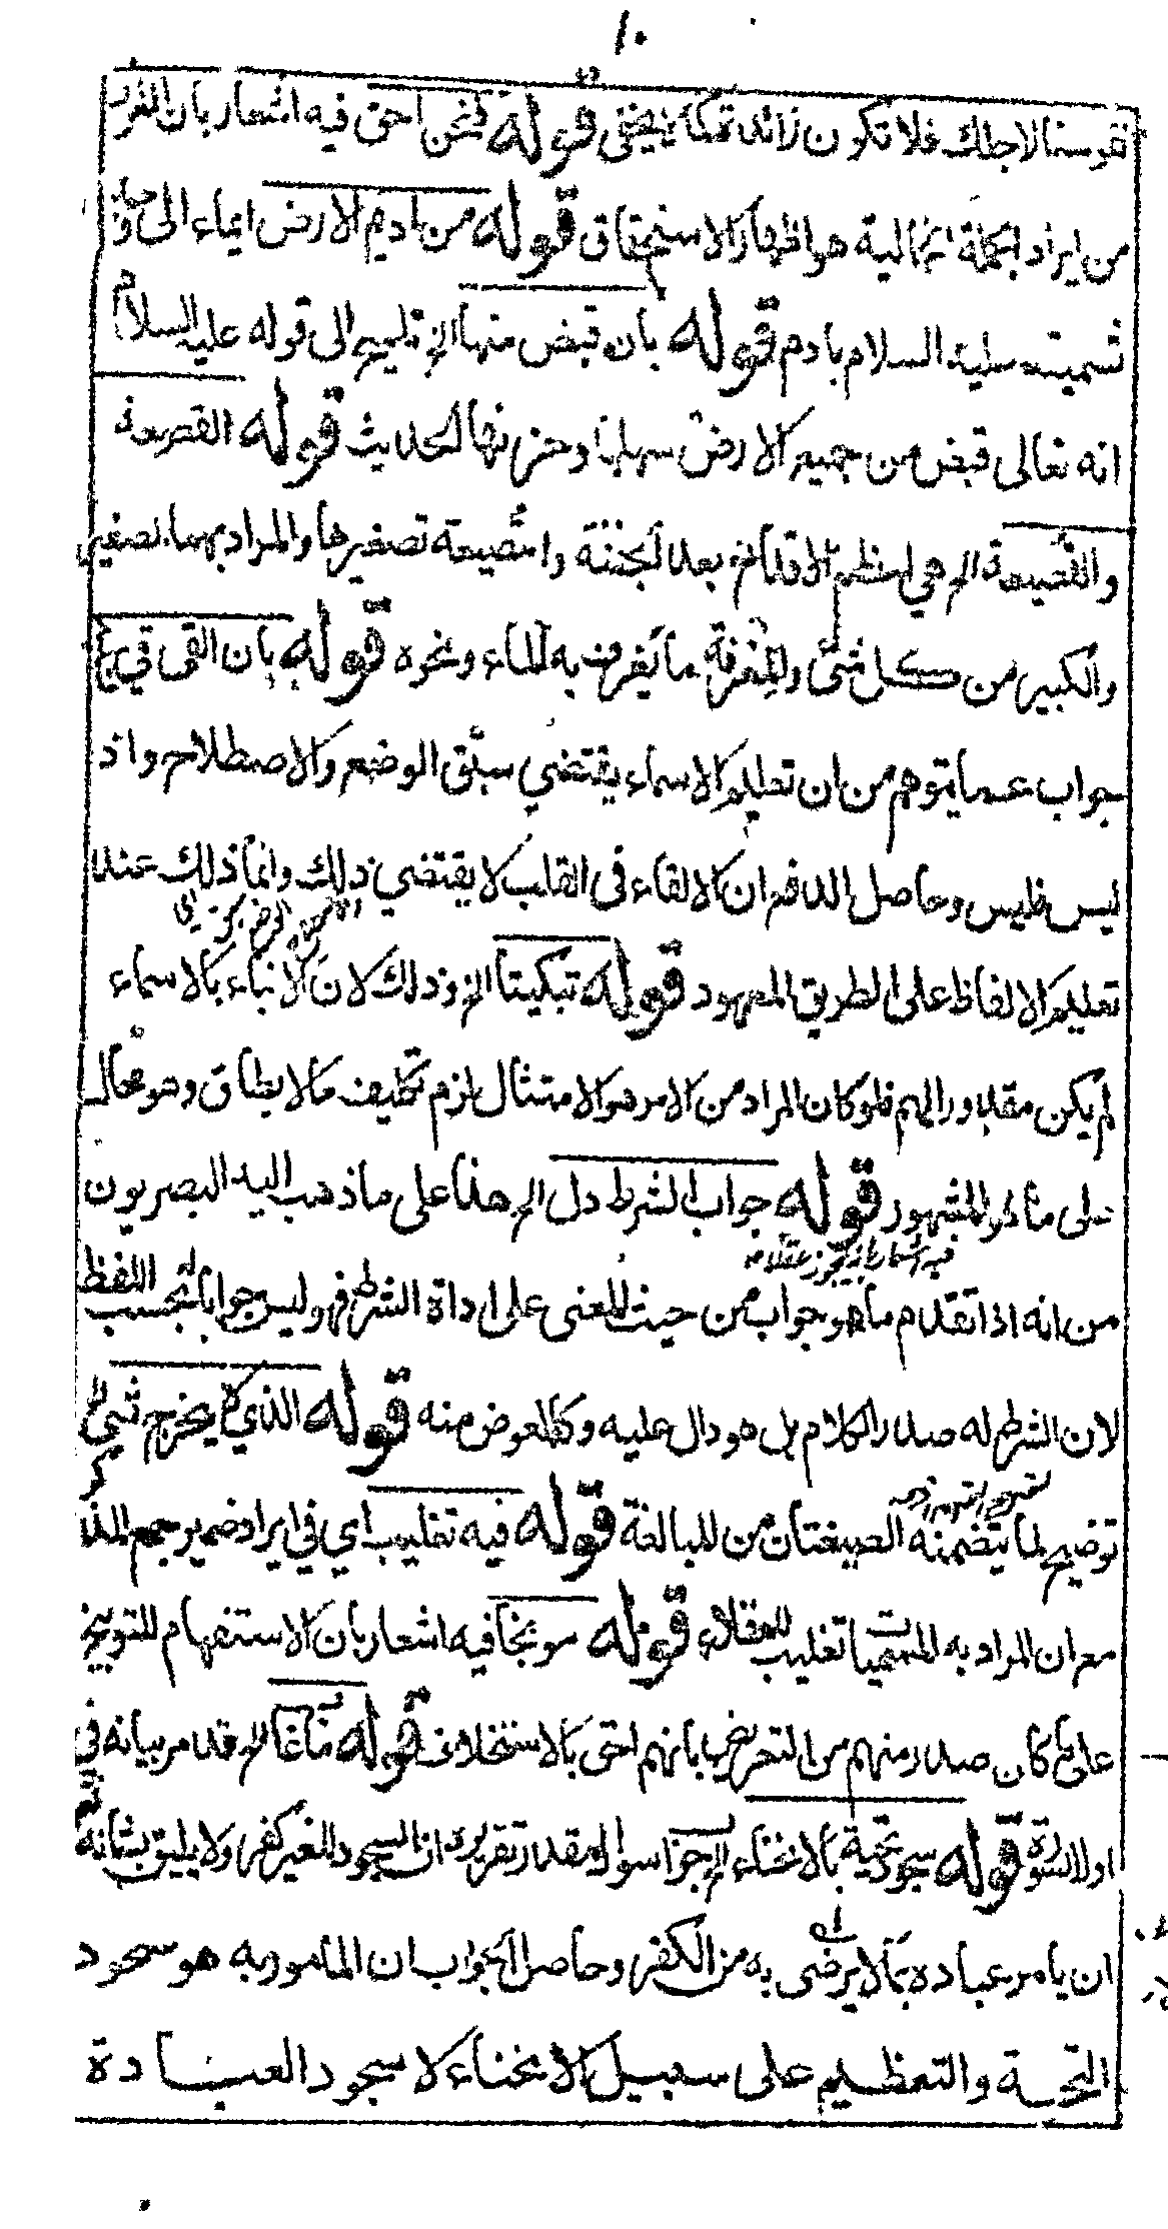 ١٠
نفوسنا لاجلك فلا تكون زائدة كما لا يخفى قوله فنحن احق فيه اشعار بان الغرض
من ايراد الجملة الحالية هو اظهار الاستحقاق قوله من اديم الارض ايماء الى وجه
تسميته عليه السلام بادم قوله بان قبض منها الخ تلميح الى قوله عليه السلام
انه تعالى قبض من جميع الارض سهلها وحزنها الحديث قوله القصعة
والقصيعة الخ هي اعظم بعد الجفنة والقصيعة تصغيرها والمراد بهما تصغير
والكبير من كل شئ والمغرفة ما يغرف به الماء ونحوه قوله بان القى في
جواب عما يتوهم من ان تعليم الاسماء يقتضي سبق الوضع والاصطلاح واذ
ليس فليس وحاصل الدفع ان الالقاء فى القلب لا يقتضي ذلك وانما ذلك عند
تعليم الالفاظ على الطريق المعهود قوله تبكيتا الخ وذلك لان الانباء بالاسماء
لم يكن مقدورا لهم فلو كان المراد من الامر هو الامتثال لزم تكليف ما لا يطاق وهو محال
على ما هو المشهور قوله جواب الشرط دل الخ هذا على ما ذهب اليه البصريون
فيه اشعار بانه يجوز عقلا منه
من انه اذا تقدم ما هو جواب من حيث المعنى على اداة الشرط فهو ليس جوابا بحسب اللفظ
لان الشرط له صدر الكلام بل هو دال عليه وكالعوض منه قوله الذي لا يخرج شئ الخ
توضيح لما يتضمنه الصيغتان من المبالغة قوله فيه تغليب اي في ايراد ضمير جمع المذكر
مع ان المراد به المسميات تغليب للعقلاء قوله موبخا فيه اشعار بان الاستفهام للتوبيخ
على ما كان صدر منهم من التعريض بانهم احق بالاستخلاف قوله سائغا الخ قد مر بيانه في
اول السورة قوله سجود تحية بالانحناء الخ جواب سوال مقدر تقريره ان السجود للغير كفر ولا يليق بشانه تع
ان يامر عباده بما لا يرضى به من الكفر وحاصل الجواب ان المامور به هو سجود
التحية والتعظيم على سبيل الانحناء لا سجود العبادة